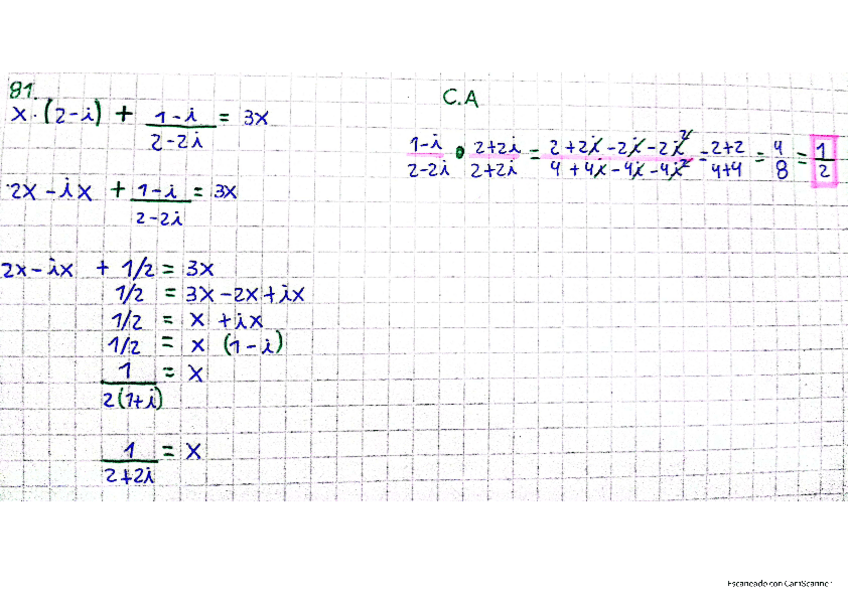 81.
x·(2-i) + 1-i/2-2i = 3x
2x-ix + 1-i/2-2i = 3x
2x-ix + 1/2 = 3x
1/2 = 3x-2x+ix
1/2 = x +ix
1/2 = x (1-i)
1/2(1+i) = x
1/2+2i = x
C.A
1-i/2-2i • 2+2i/2+2i = 2+2i-2i-2i²/4+4i-4i-4i² = 2+2/4+4 = 4/8 = 1/2
Escaneado con CamScanner